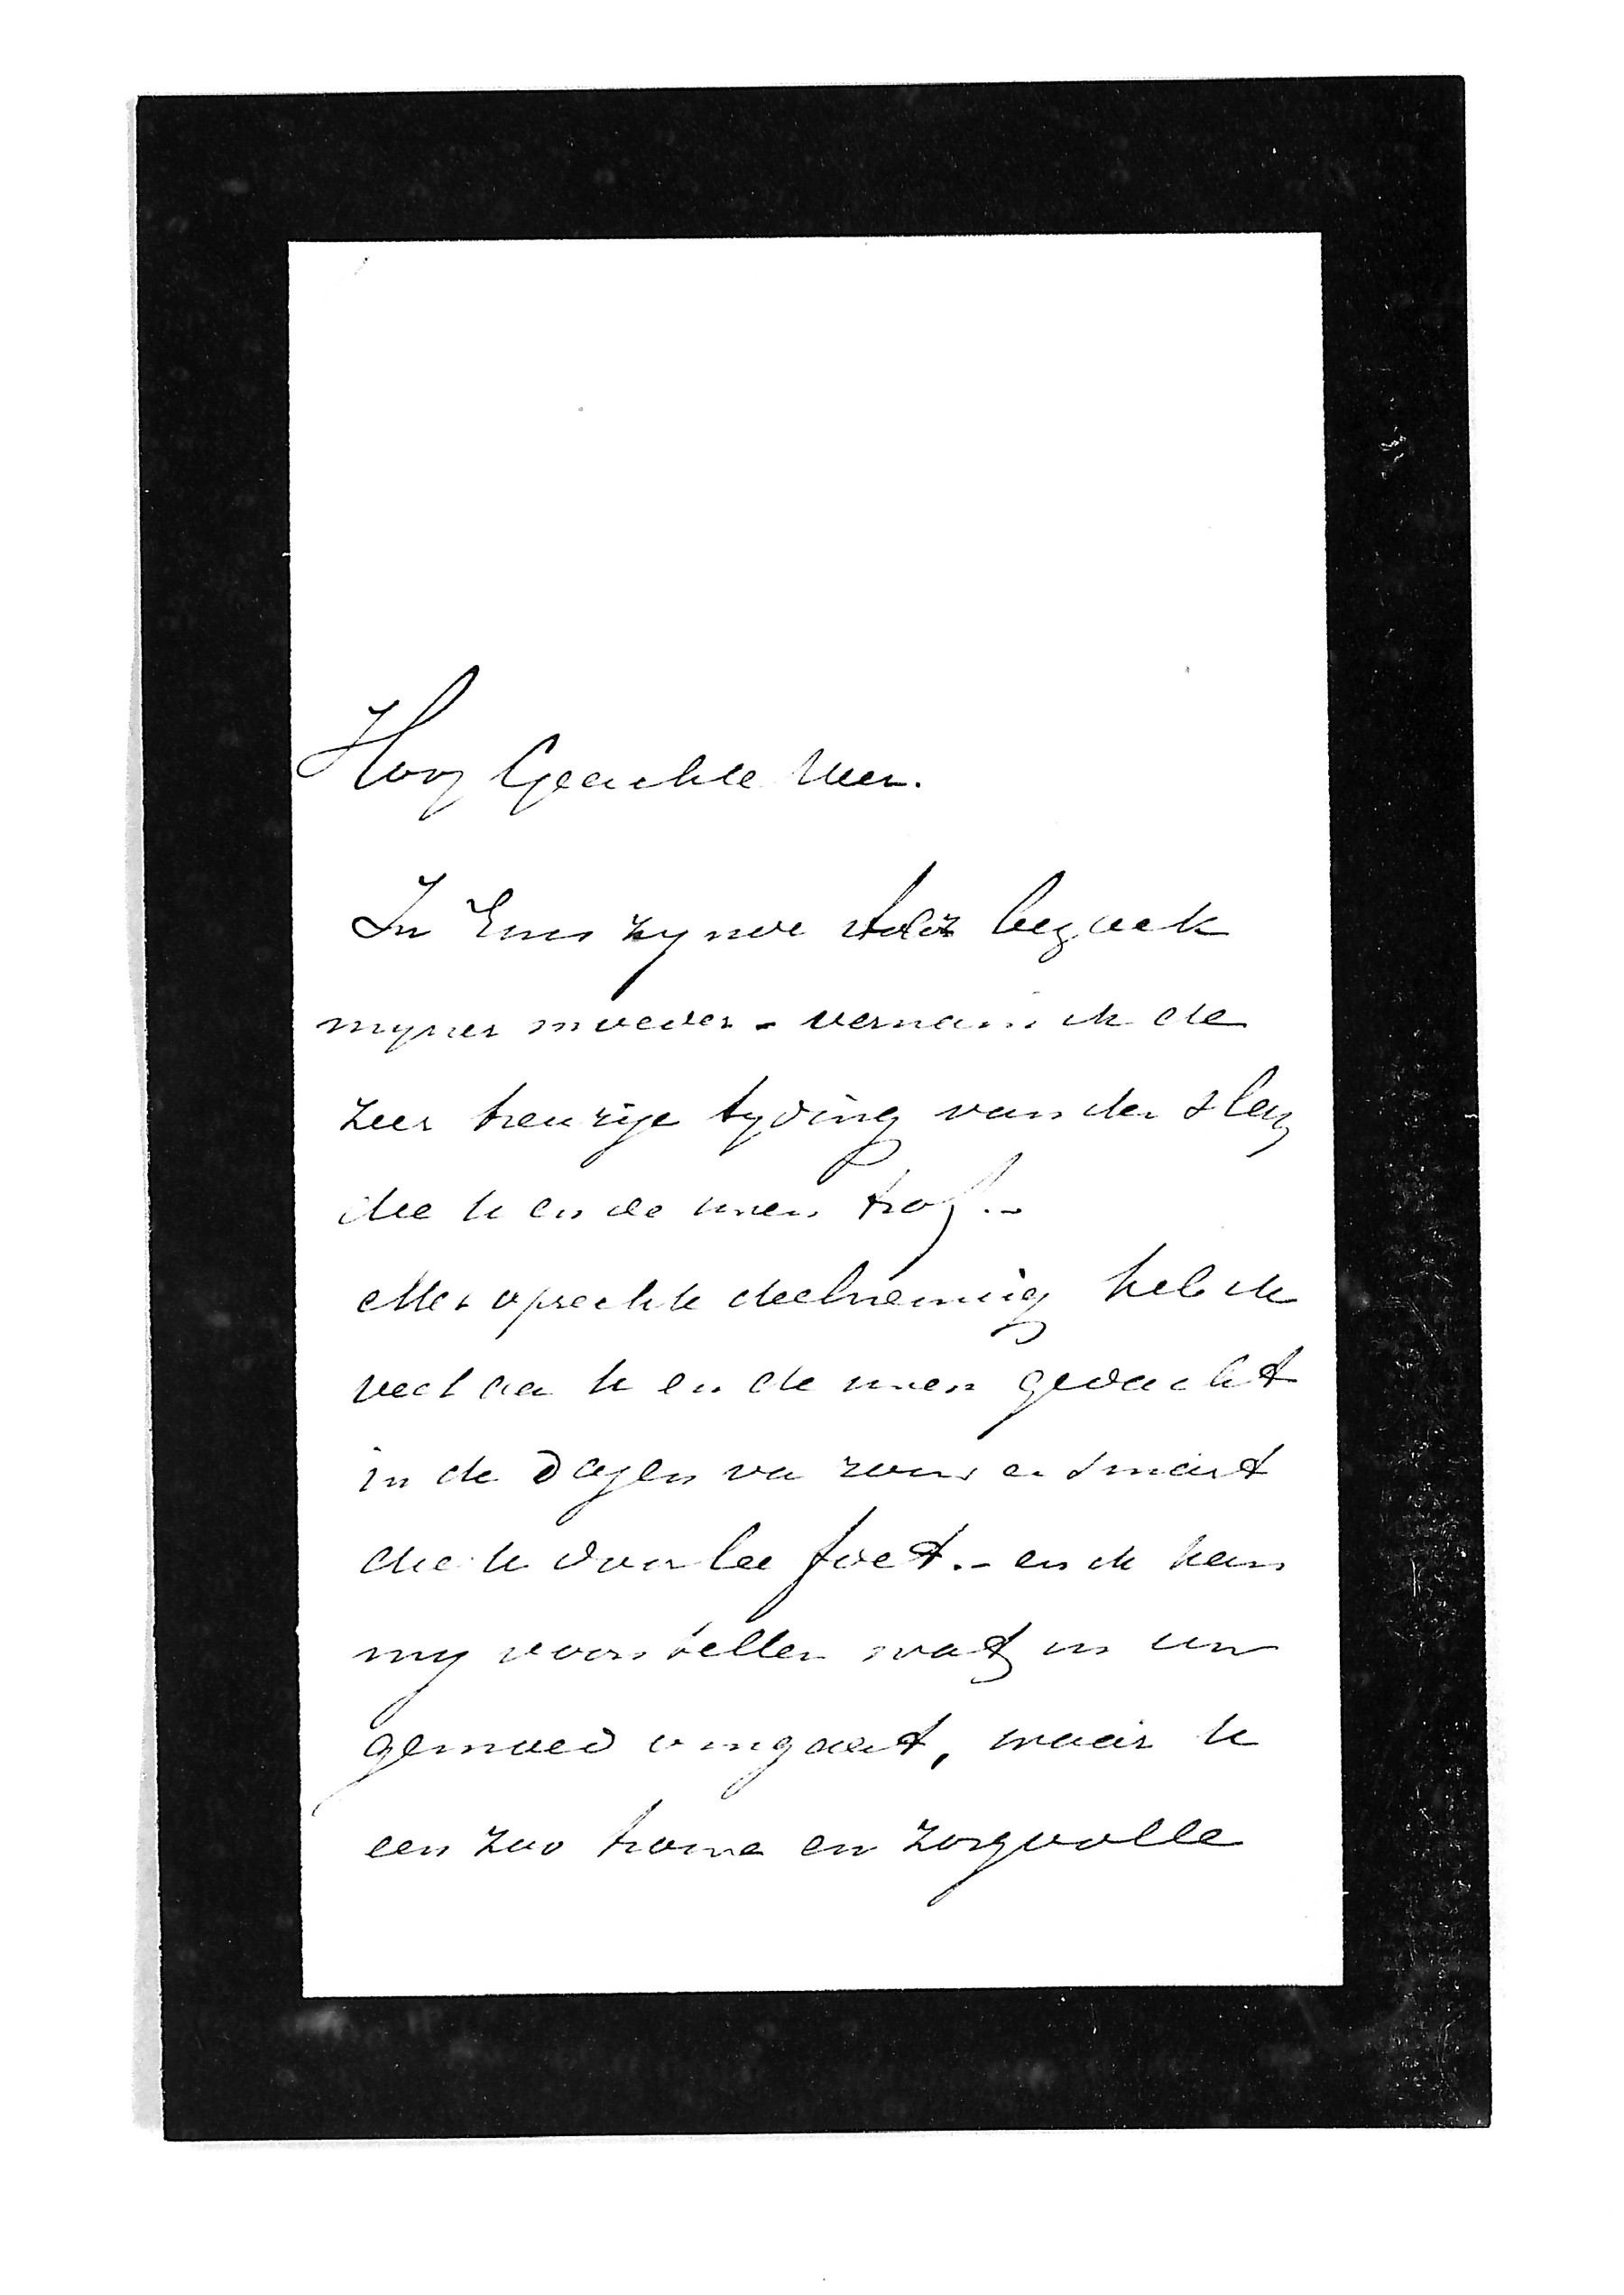 Hoog Geachte Heer.
In Ems zynde ter bezoek
myner moeder - vernam ik de
zeer treurige tyding van den slag
die U en de uwen trof. -
Met oprechte deelneming heb ik
veel aan U en de uwen gedacht
in de dagen van rouw en smart
die U doorleefdet. - en ik kan
my voorstellen wat in uw
gemoed omgaat, waar U
een zoo trouwe en zorgvolle